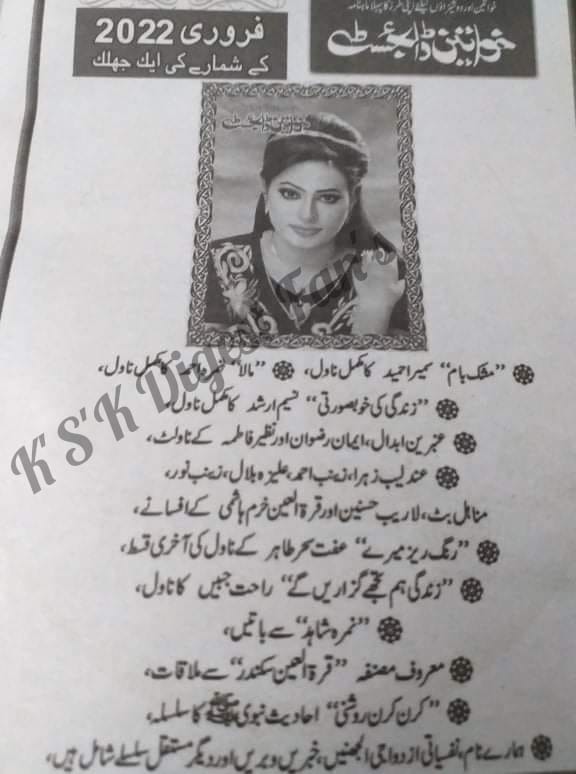 خواتین اور دوشیزاؤں کیلئے اپنی طرز کا پہلا ماہنامہ
خواتین ڈائجسٹ
فروری 2022
کے شمارے کی ایک جھلک
خواتین ڈائجسٹ
K'S'K Digest Fan's
”مشک بام“ سمیرا حمید کا مکمل ناول، ”مالا“ نمرہ احمد کا مکمل ناول،
”زندگی کی خوبصورتی“ تسیم ارشد کا مکمل ناول،
عنبرین ابدال، ایمان رضوان اور نظیر فاطمہ کے ناولٹ،
عندلیب زہرا، زینب احمد، علیزہ بلال، زینب نور،
مناہل بٹ، لاریب حسنین اور قرۃ العین خرم ہاشمی کے افسانے،
”رنگ ریز میرے“ عفت سحر طاہر کے ناول کی آخری قسط،
”زندگی ہم تجھے گزاریں گے“ راحت جبیں کا ناول،
”نمرہ شاہد“ سے باتیں،
معروف مصنفہ ”قرۃ العین سکندر“ سے ملاقات،
”کرن کرن روشنی“ احادیث نبوی ﷺ کا سلسلہ،
ہمارے نام، نفسیاتی ازدواجی الجھنیں، خبریں وبریں اور دیگر مستقل سلسلے شامل ہیں،